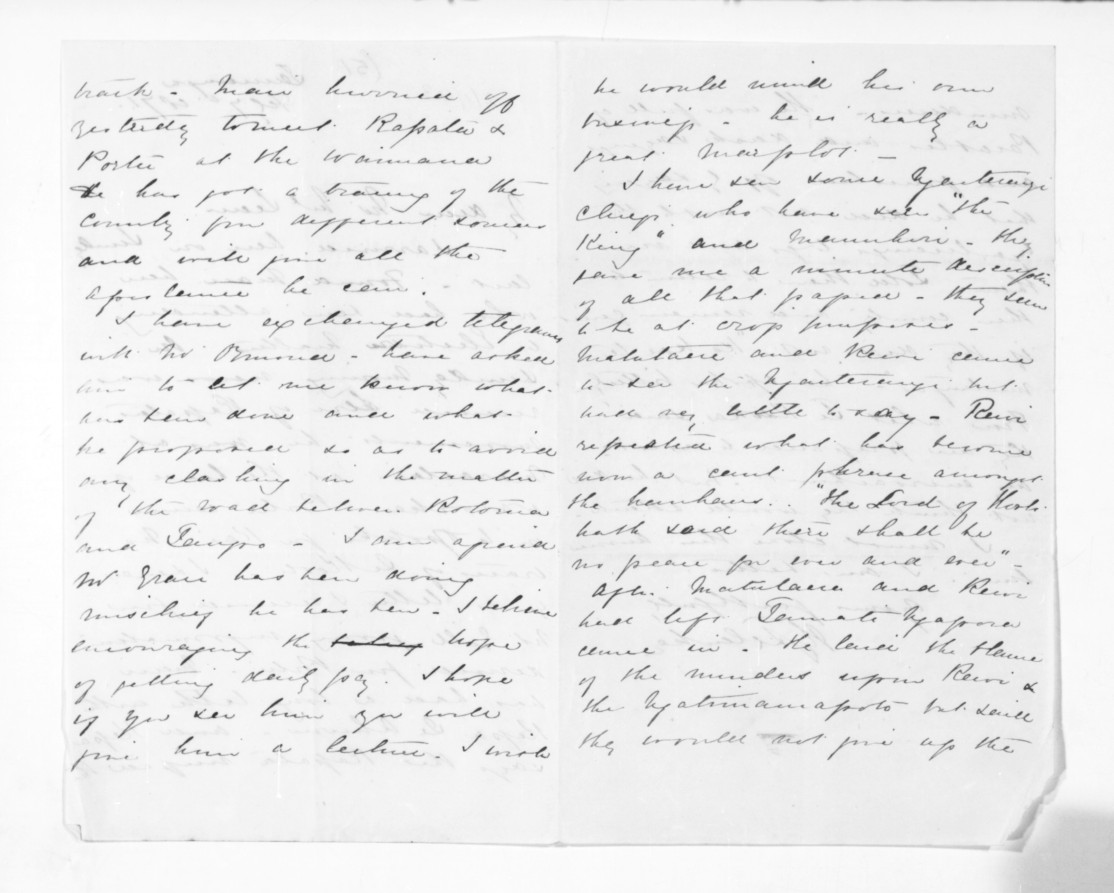 track - Mair hurried off
yesterday to meet Rapata &
Porter at the Waimana
He has got a tracing of the
country from different sources
and will give all the
assistance he can.
I have exchanged telegrams
with Mr Ormond - have asked
him to let me know what
has been done and what
he proposed so as to avoid
any clashing in the matter
of the road between Rotorua
and Taupo - I am afraid
Mr Grace has been doing
mischief he has been - I believe
encouraging the hope
of getting daily pay. I hope
if you see him you will
give him a lecture. I wish
he would mind his own
business - he is really a
great marplot -
I have seen some Ngaiterangi
chiefs who have seen "the
King" and Manuhiri - they
gave me a minute description
of all that passed - they seem
to be at cross purposes -
Matutaera and Rewi came
to see the Ngaiterangi but
had very little to say - Rewi
repeated what has become
now a cant phrase amongst
the hauhaus.. "The Lord of Hosts
hath said there shall be
no peace for ever and ever" -
After Matutaera and Rewi
had left Tamati Ngapora
came in - He laid the blame
of the murders upon Rewi &
the Ngatimaniapoto but said
they would not give up the